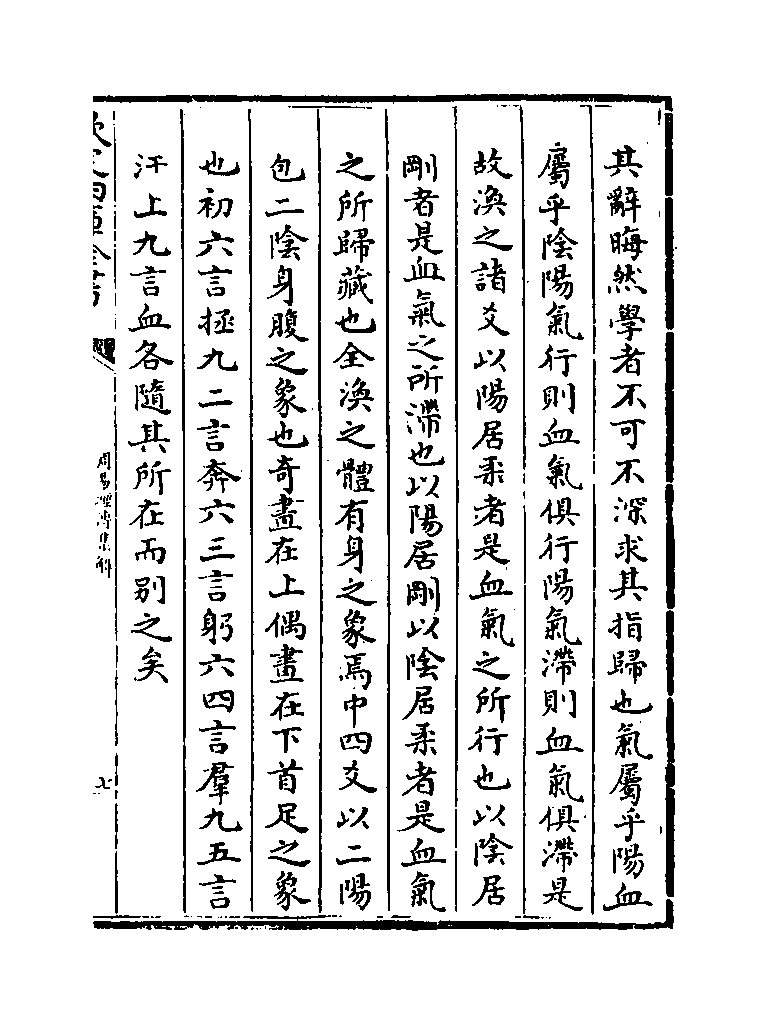 其辭晦然學者不可不深求其指歸也氣屬乎陽血
屬乎陰陽氣行則血氣俱行陽氣滯則血氣俱滯是
故渙之諸爻以陽居柔者是血氣之所行也以陰居
剛者是血氣之所滯也以陽居剛以陰居柔者是血氣
之所歸藏也全渙之體有身之象焉中四爻以二陽
包二陰身腹之象也奇畫在上偶畫在下首足之象
也初六言拯九二言奔六三言躬六四言羣九五言
汗上九言血各隨其所在而別之矣
欽定四庫全書
周易經傳集解
七